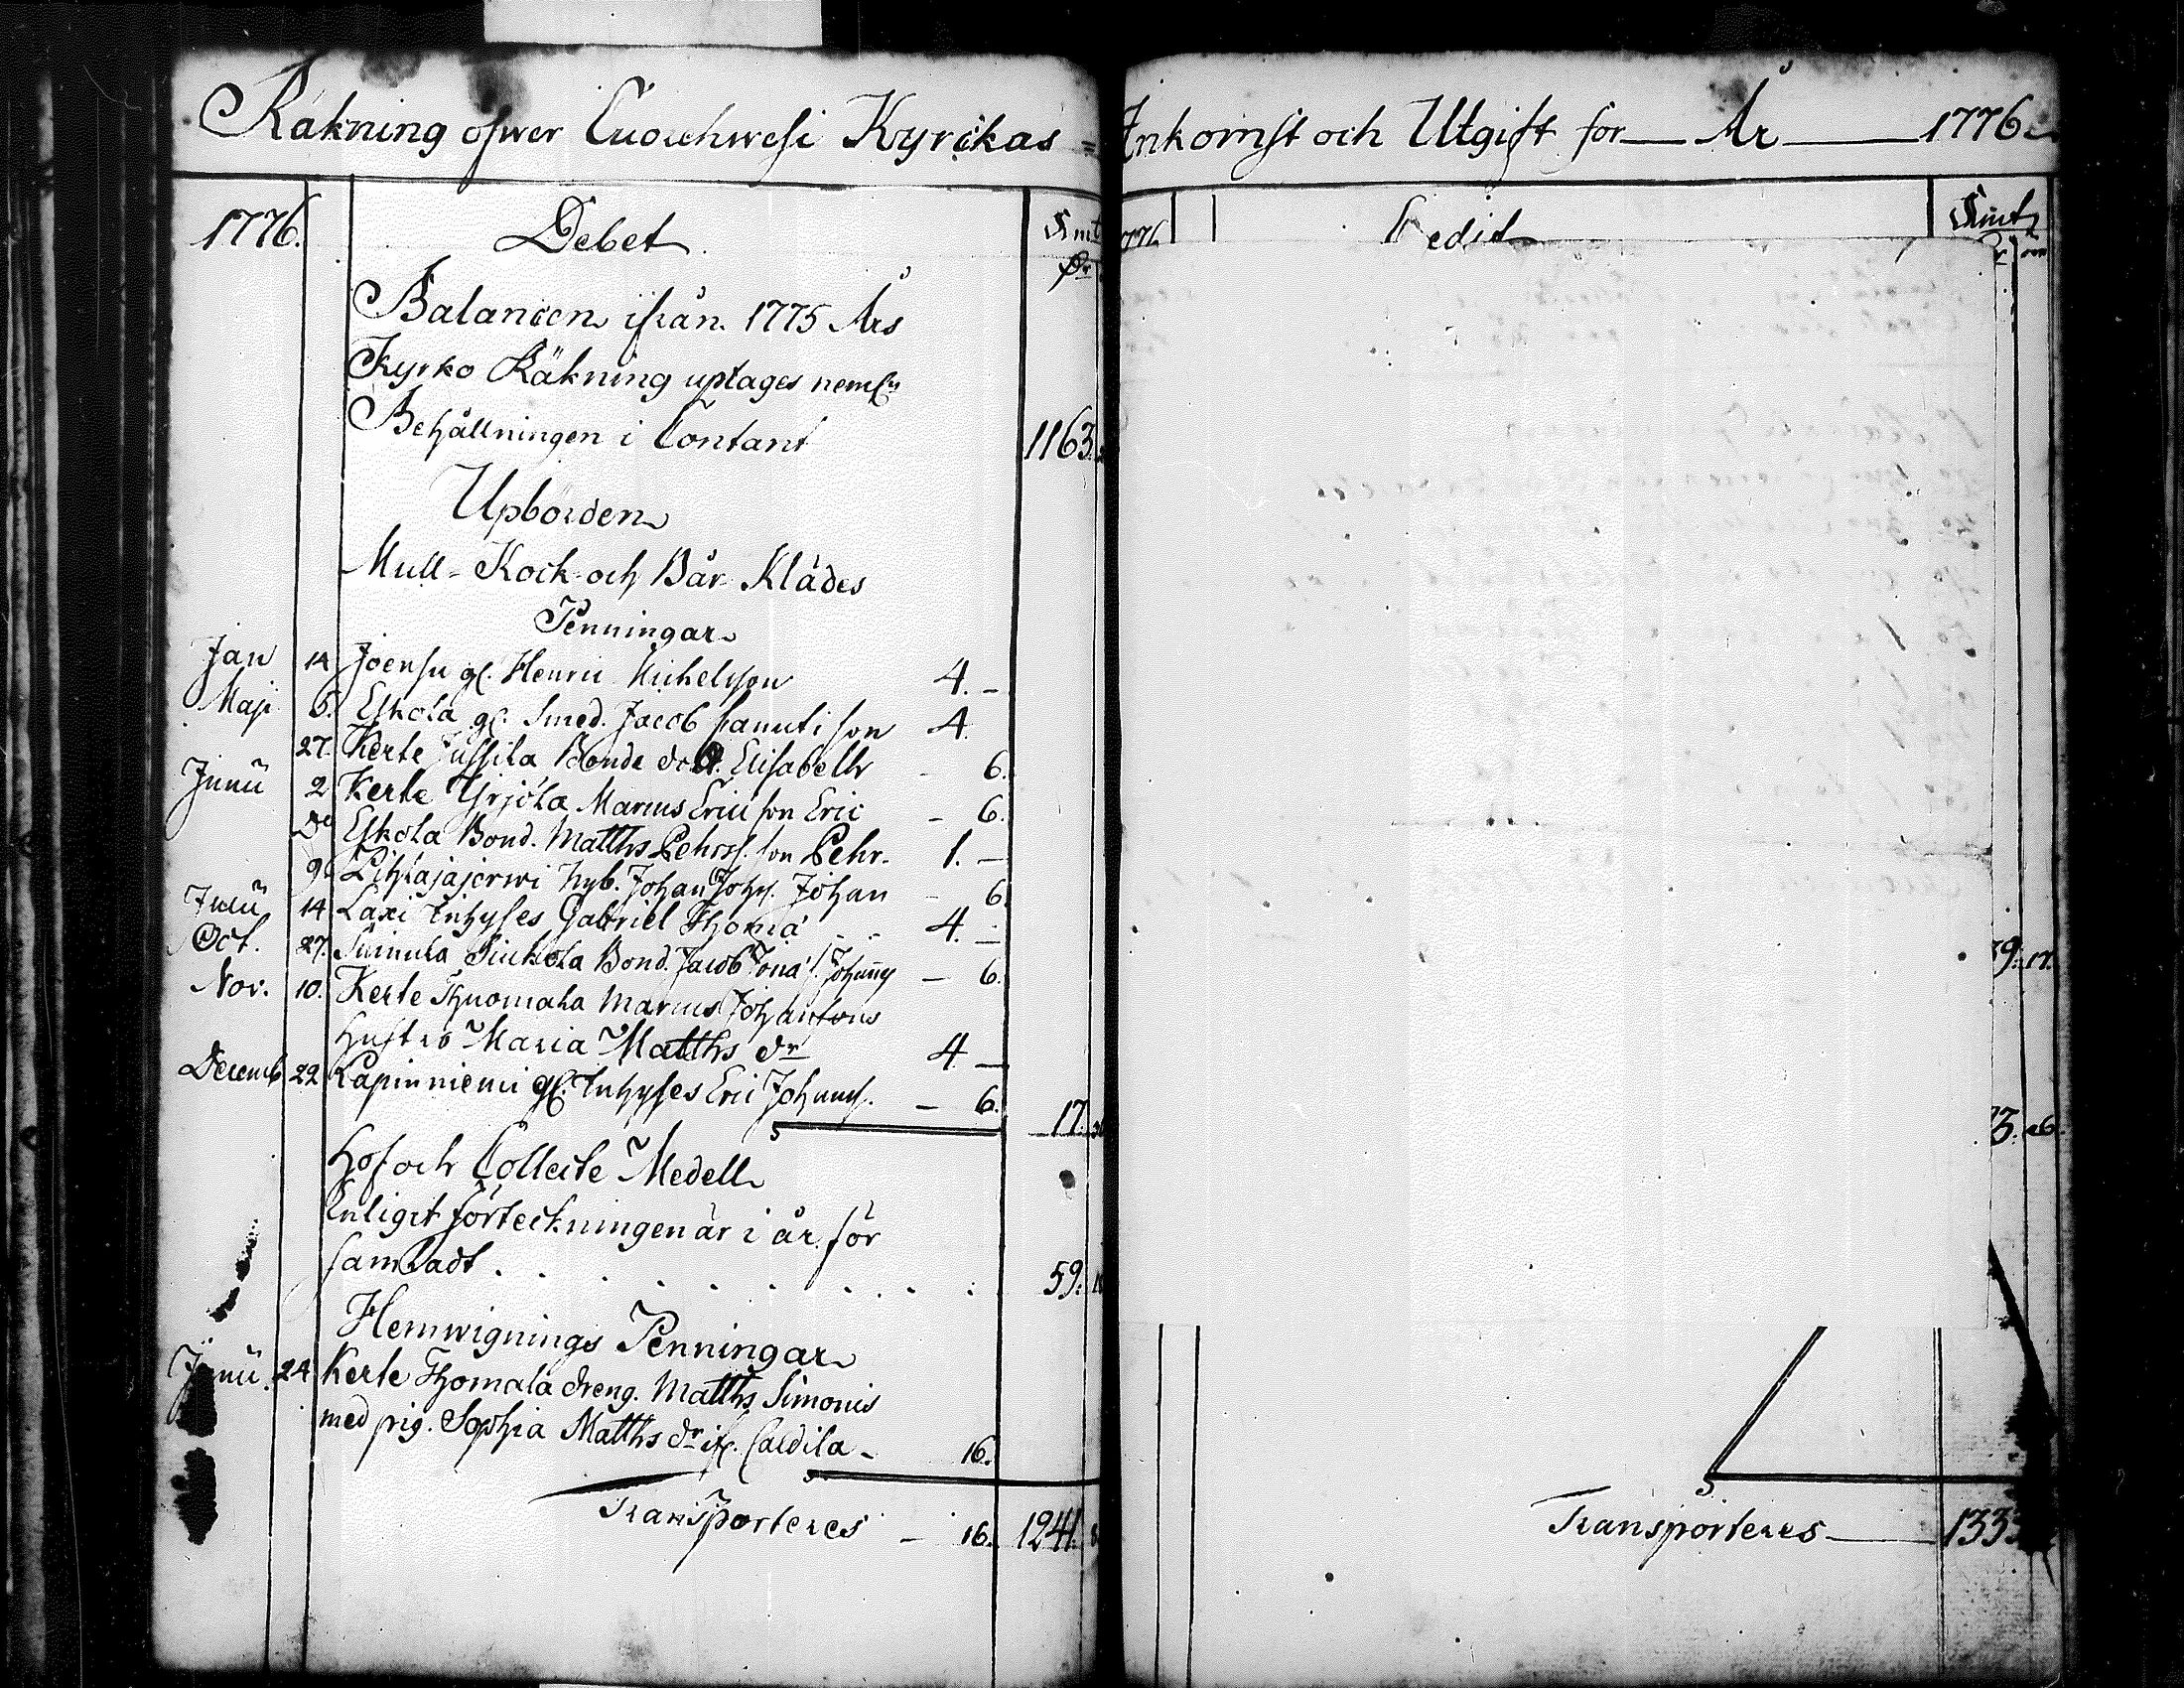 Räkning öfwer Cuorehwesi Kyrckas = Inkomst och Utgift för År 1776
1776. Debet Smt
Balancen ifrån 1775 Års
Kyrko Räkning uptages neml:n
Behållningen i Contant 1163.
Upbörden
Mull-Kock-och Bår-Klädes
Penningar
Jan 14 Joensu gl. Henric Michelsson 4. –
Maji 6. Eskola gl. Smed. Jacob son 4.
27. Kerte Jussila Bonde dott. Elisabeth – 6.
Junii 2 Kerte Yrjöla Marcus Erici son Eric – 6.
Do Eskola Bond. Matths Pehrss. son Pehr. 1. –
9 Johan Johs. Johan – 6
14 Laxi Inhyses Gabriel Thomæ 4. –
Oct. 27. Suinula Bond. Jacob Johans – 6.
Nov. 10. Kerte Thuomala Marcus Johanssons
hustro Maria Matths dr 4 –
Decemb 22 Lapinniemi gl. Inhyses Eric Johanss. – 6.
17.
Hof och Collecte Medell
Enligit förteckningen är i år för
samladt . . . . . . . . . 59:
Hemwignings Penningar
Junii. 24 Kerte Thomala dreng. Matths Simonis
med pig. Sophia Matths dr ifr. 16.
Transporteres – 16. 1241.
1776 Credit Smt
9: 17.
3: 26
Transporteres 1333